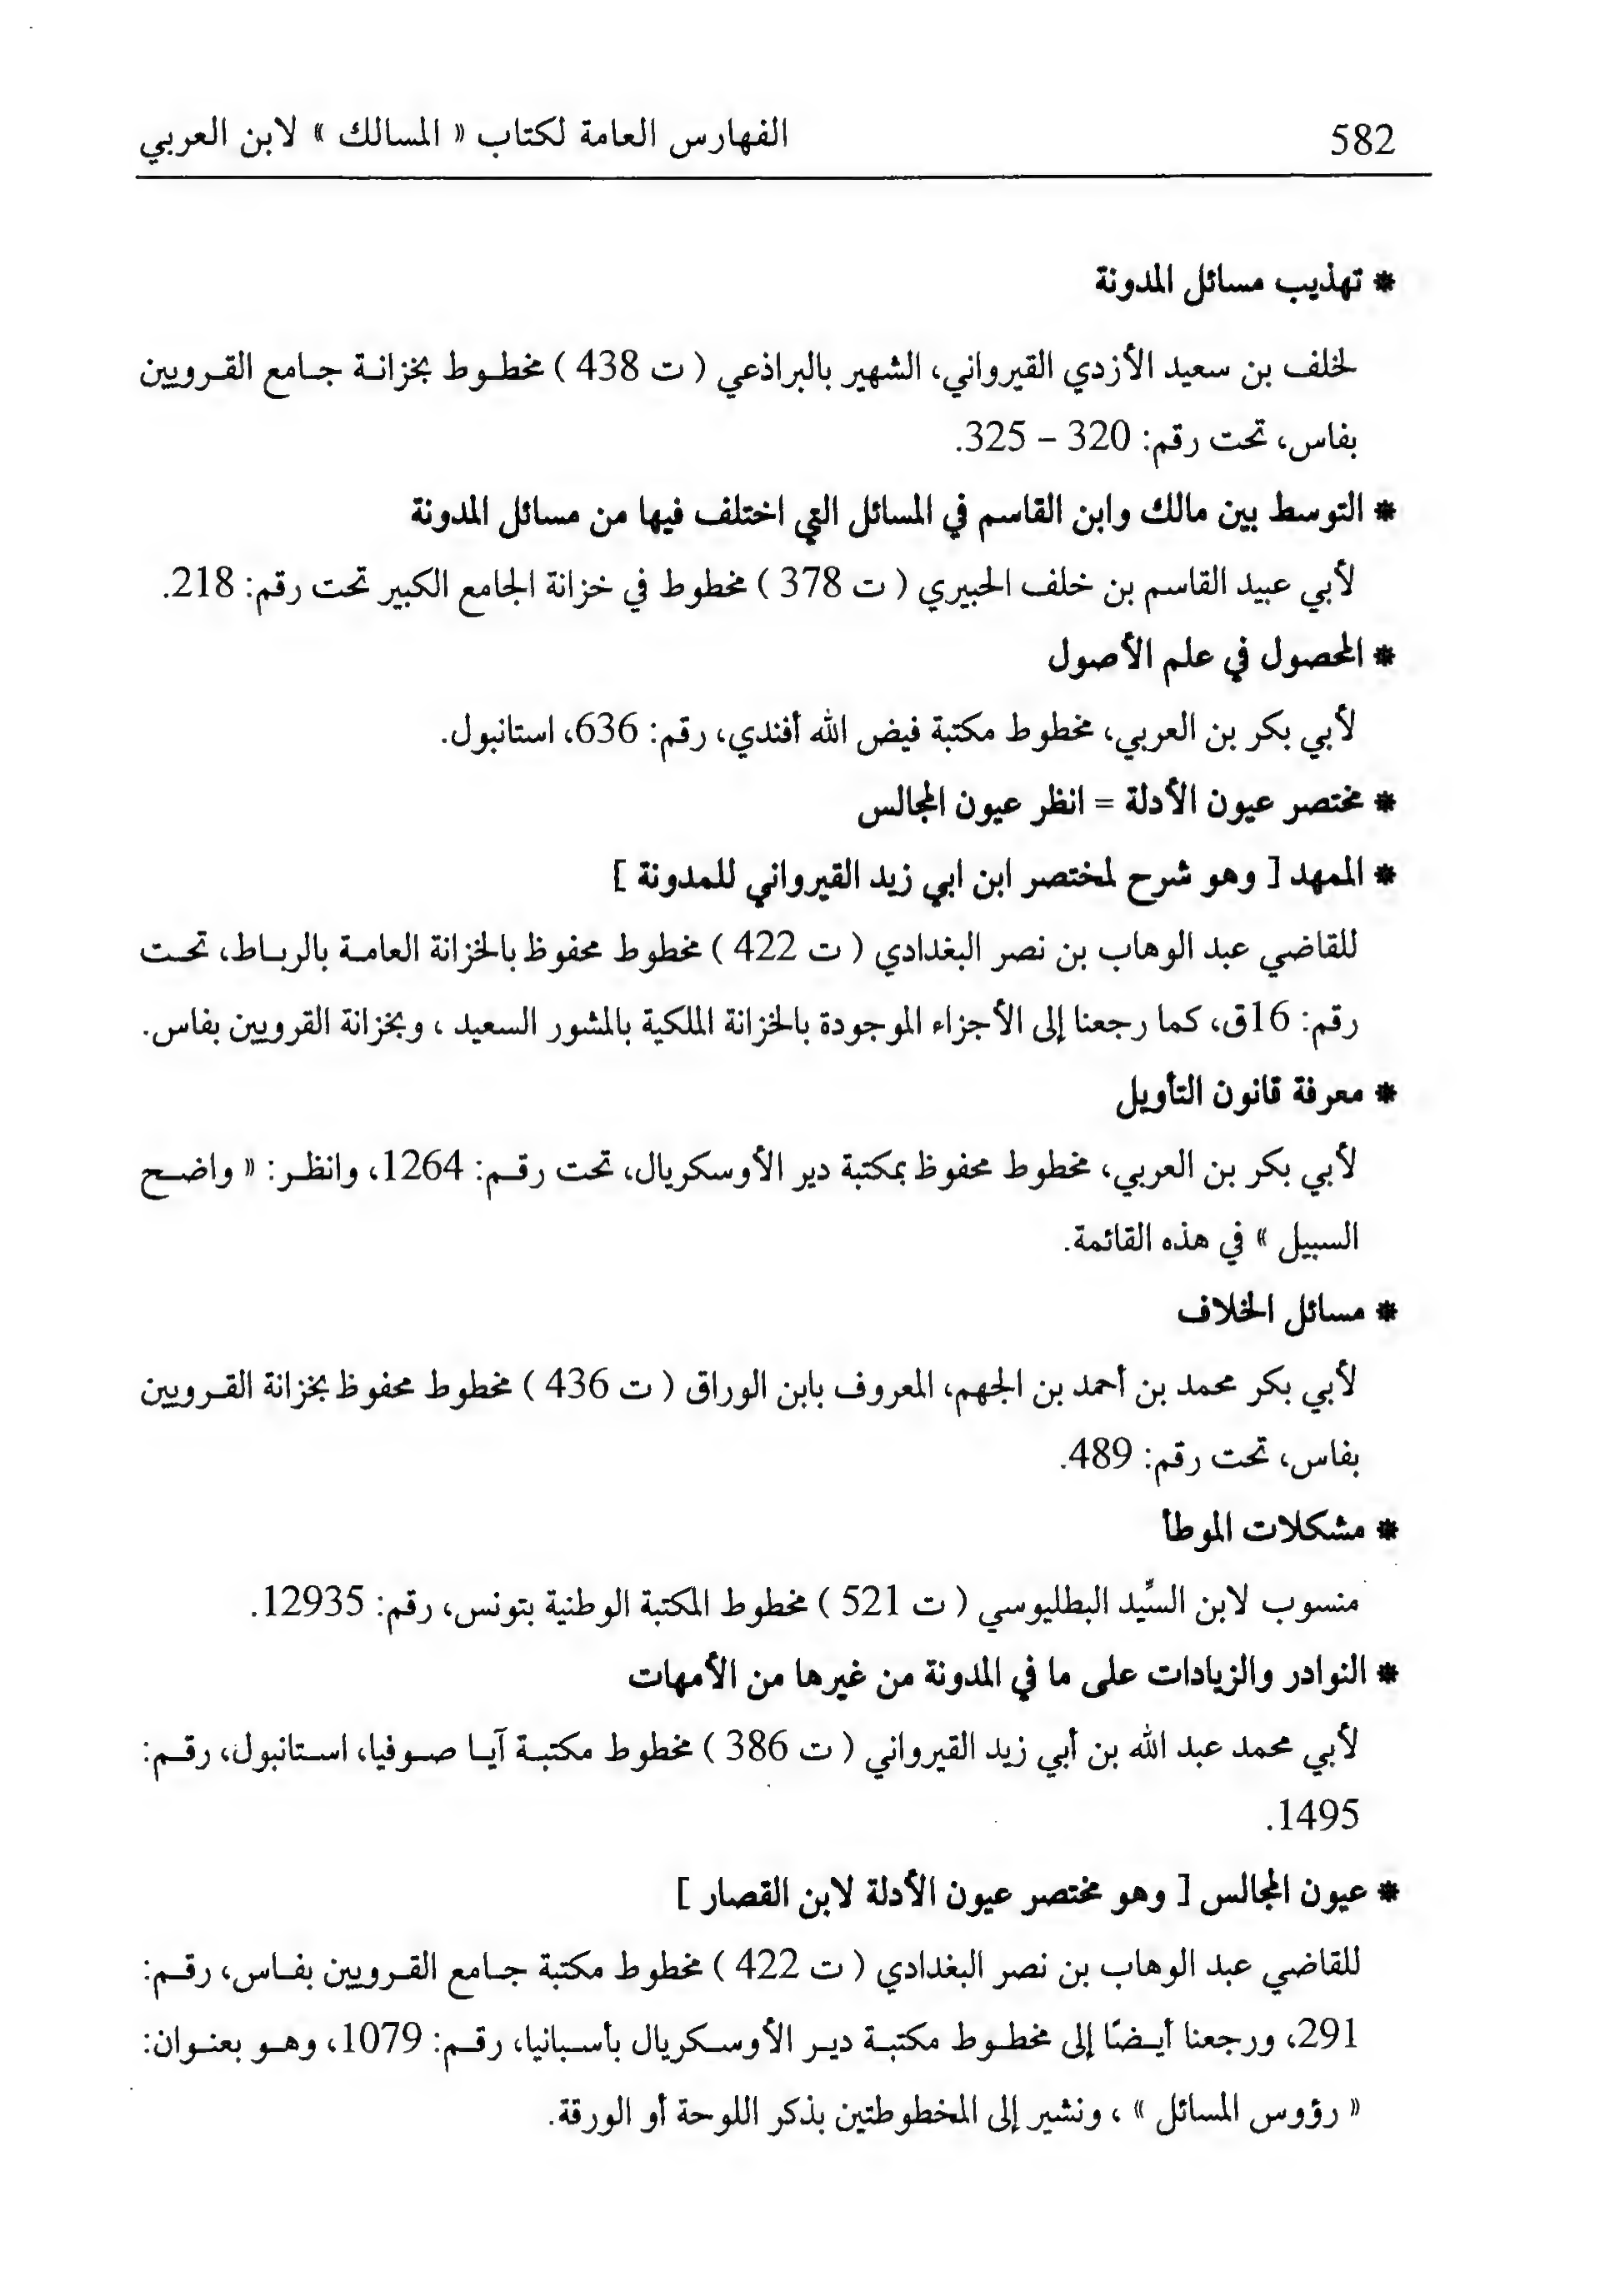 582 الفهارس العامة لكتاب « المسالك » لابن العربي
* تهذيب مسائل المدونة
لخلف بن سعيد الأزدي القيرواني، الشهير بالبراذعي ( ت 438 ) مخطوط بخزانة جامع القرويين
بفاس، تحت رقم: 320 – 325.
* التوسط بين مالك وابن القاسم في المسائل التي اختلف فيها من مسائل المدونة
لأبي عبيد القاسم بن خلف الحبيري ( ت 378 ) مخطوط في خزانة الجامع الكبير تحت رقم: 218.
* المحصول في علم الأصول
لأبي بكر بن العربي، مخطوط مكتبة فيض الله أفندي، رقم: 636، استانبول.
* مختصر عيون الأدلة = انظر عيون المجالس
* الممهد [ وهو شرح لمختصر ابن ابي زيد القيرواني للمدونة ]
للقاضي عبد الوهاب بن نصر البغدادي ( ت 422 ) مخطوط محفوظ بالخزانة العامة بالرباط، تحت
رقم: 16ق، كما رجعنا إلى الأجزاء الموجودة بالخزانة الملكية بالمشور السعيد ، وبخزانة القرويين بفاس.
* معرفة قانون التأويل
لأبي بكر بن العربي، مخطوط محفوظ بمكتبة دير الأوسكريال، تحت رقم: 1264، وانظر: « واضح
السبيل » في هذه القائمة.
* مسائل الخلاف
لأبي بكر محمد بن أحمد بن الجهم، المعروف بابن الوراق ( ت 436 ) مخطوط محفوظ بخزانة القرويين
بفاس، تحت رقم: 489.
* مشكلات الموطأ
منسوب لابن السِّيد البطليوسي ( ت 521 ) مخطوط المكتبة الوطنية بتونس، رقم: 12935.
* النوادر والزيادات على ما في المدونة من غيرها من الأمهات
لأبي محمد عبد الله بن أبي زيد القيرواني ( ت 386 ) مخطوط مكتبة آيا صوفيا، استانبول، رقم:
1495.
* عيون المجالس [ وهو مختصر عيون الأدلة لابن القصار ]
للقاضي عبد الوهاب بن نصر البغدادي ( ت 422 ) مخطوط مكتبة جامع القرويين بفاس، رقم:
291، ورجعنا أيضًا إلى مخطوط مكتبة دير الأوسكريال بأسبانيا، رقم: 1079، وهو بعنوان:
« رؤوس المسائل » ، ونشير إلى المخطوطتين بذكر اللوحة أو الورقة.